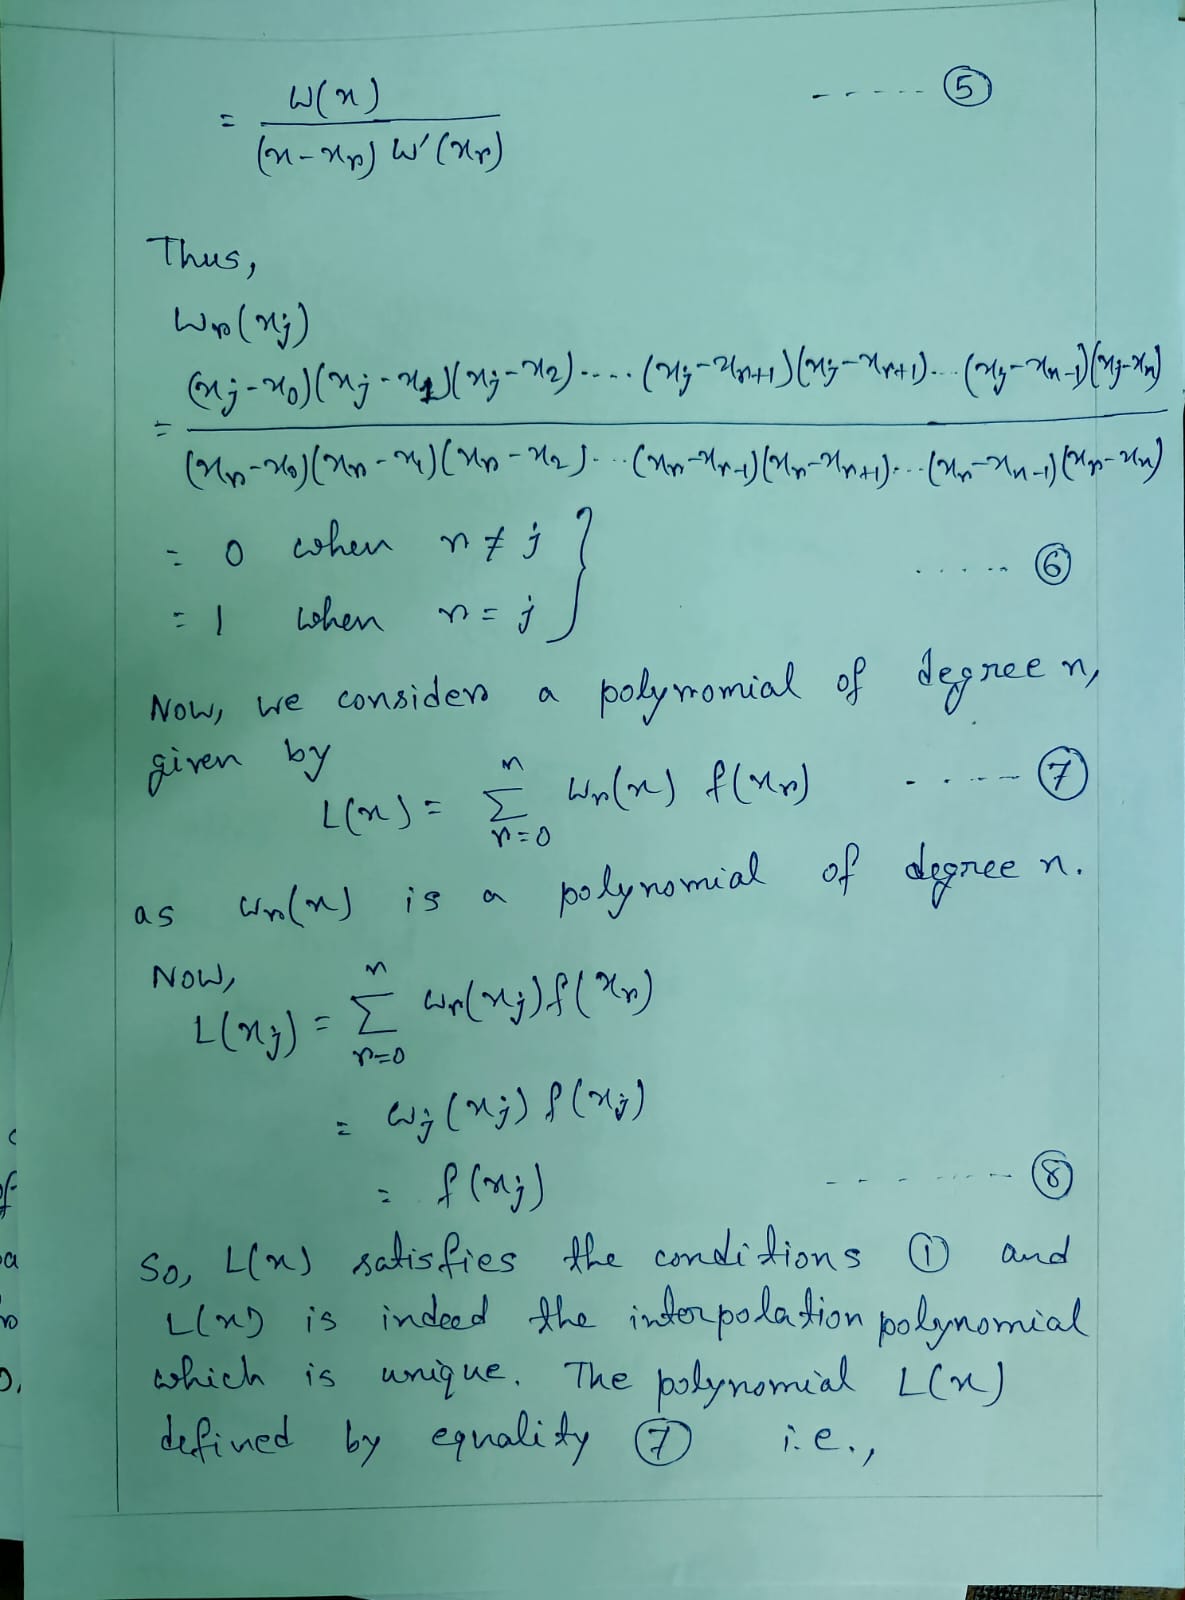 = W(x) / (x-xr) W'(xr) ------ (5)
Thus,
Wr(xj)
= (xj-x0)(xj-x1)(xj-x2)..... (xj-xr+1)(xj-xr+1)... (xj-xn-1)(xj-xn) / (xr-x0)(xr-x1)(xr-x2)... (xr-xr-1)(xr-xr+1)... (xr-xn-1)(xr-xn)
= 0 when r ≠ j }
= 1 when r = j } ..... (6)
Now, we consider a polynomial of degree n,
given by
L(x) = n Σ r=0 Wr(x) f(xr) ----- (7)
as wr(x) is a polynomial of degree n.
Now,
L(xj) = n Σ r=0 wr(xj) f(xr)
= wj(xj) f(xj)
= f(xj) -------- (8)
So, L(x) satisfies the conditions (1) and
L(x) is indeed the interpolation polynomial
which is unique. The polynomial L(x)
defined by equality (7) i.e.,